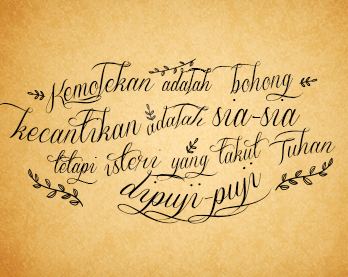 Kemolekan adalah bohong
kecantikan adalah sia-sia
tetapi isteri yang takut Tuhan
dipuji-puji